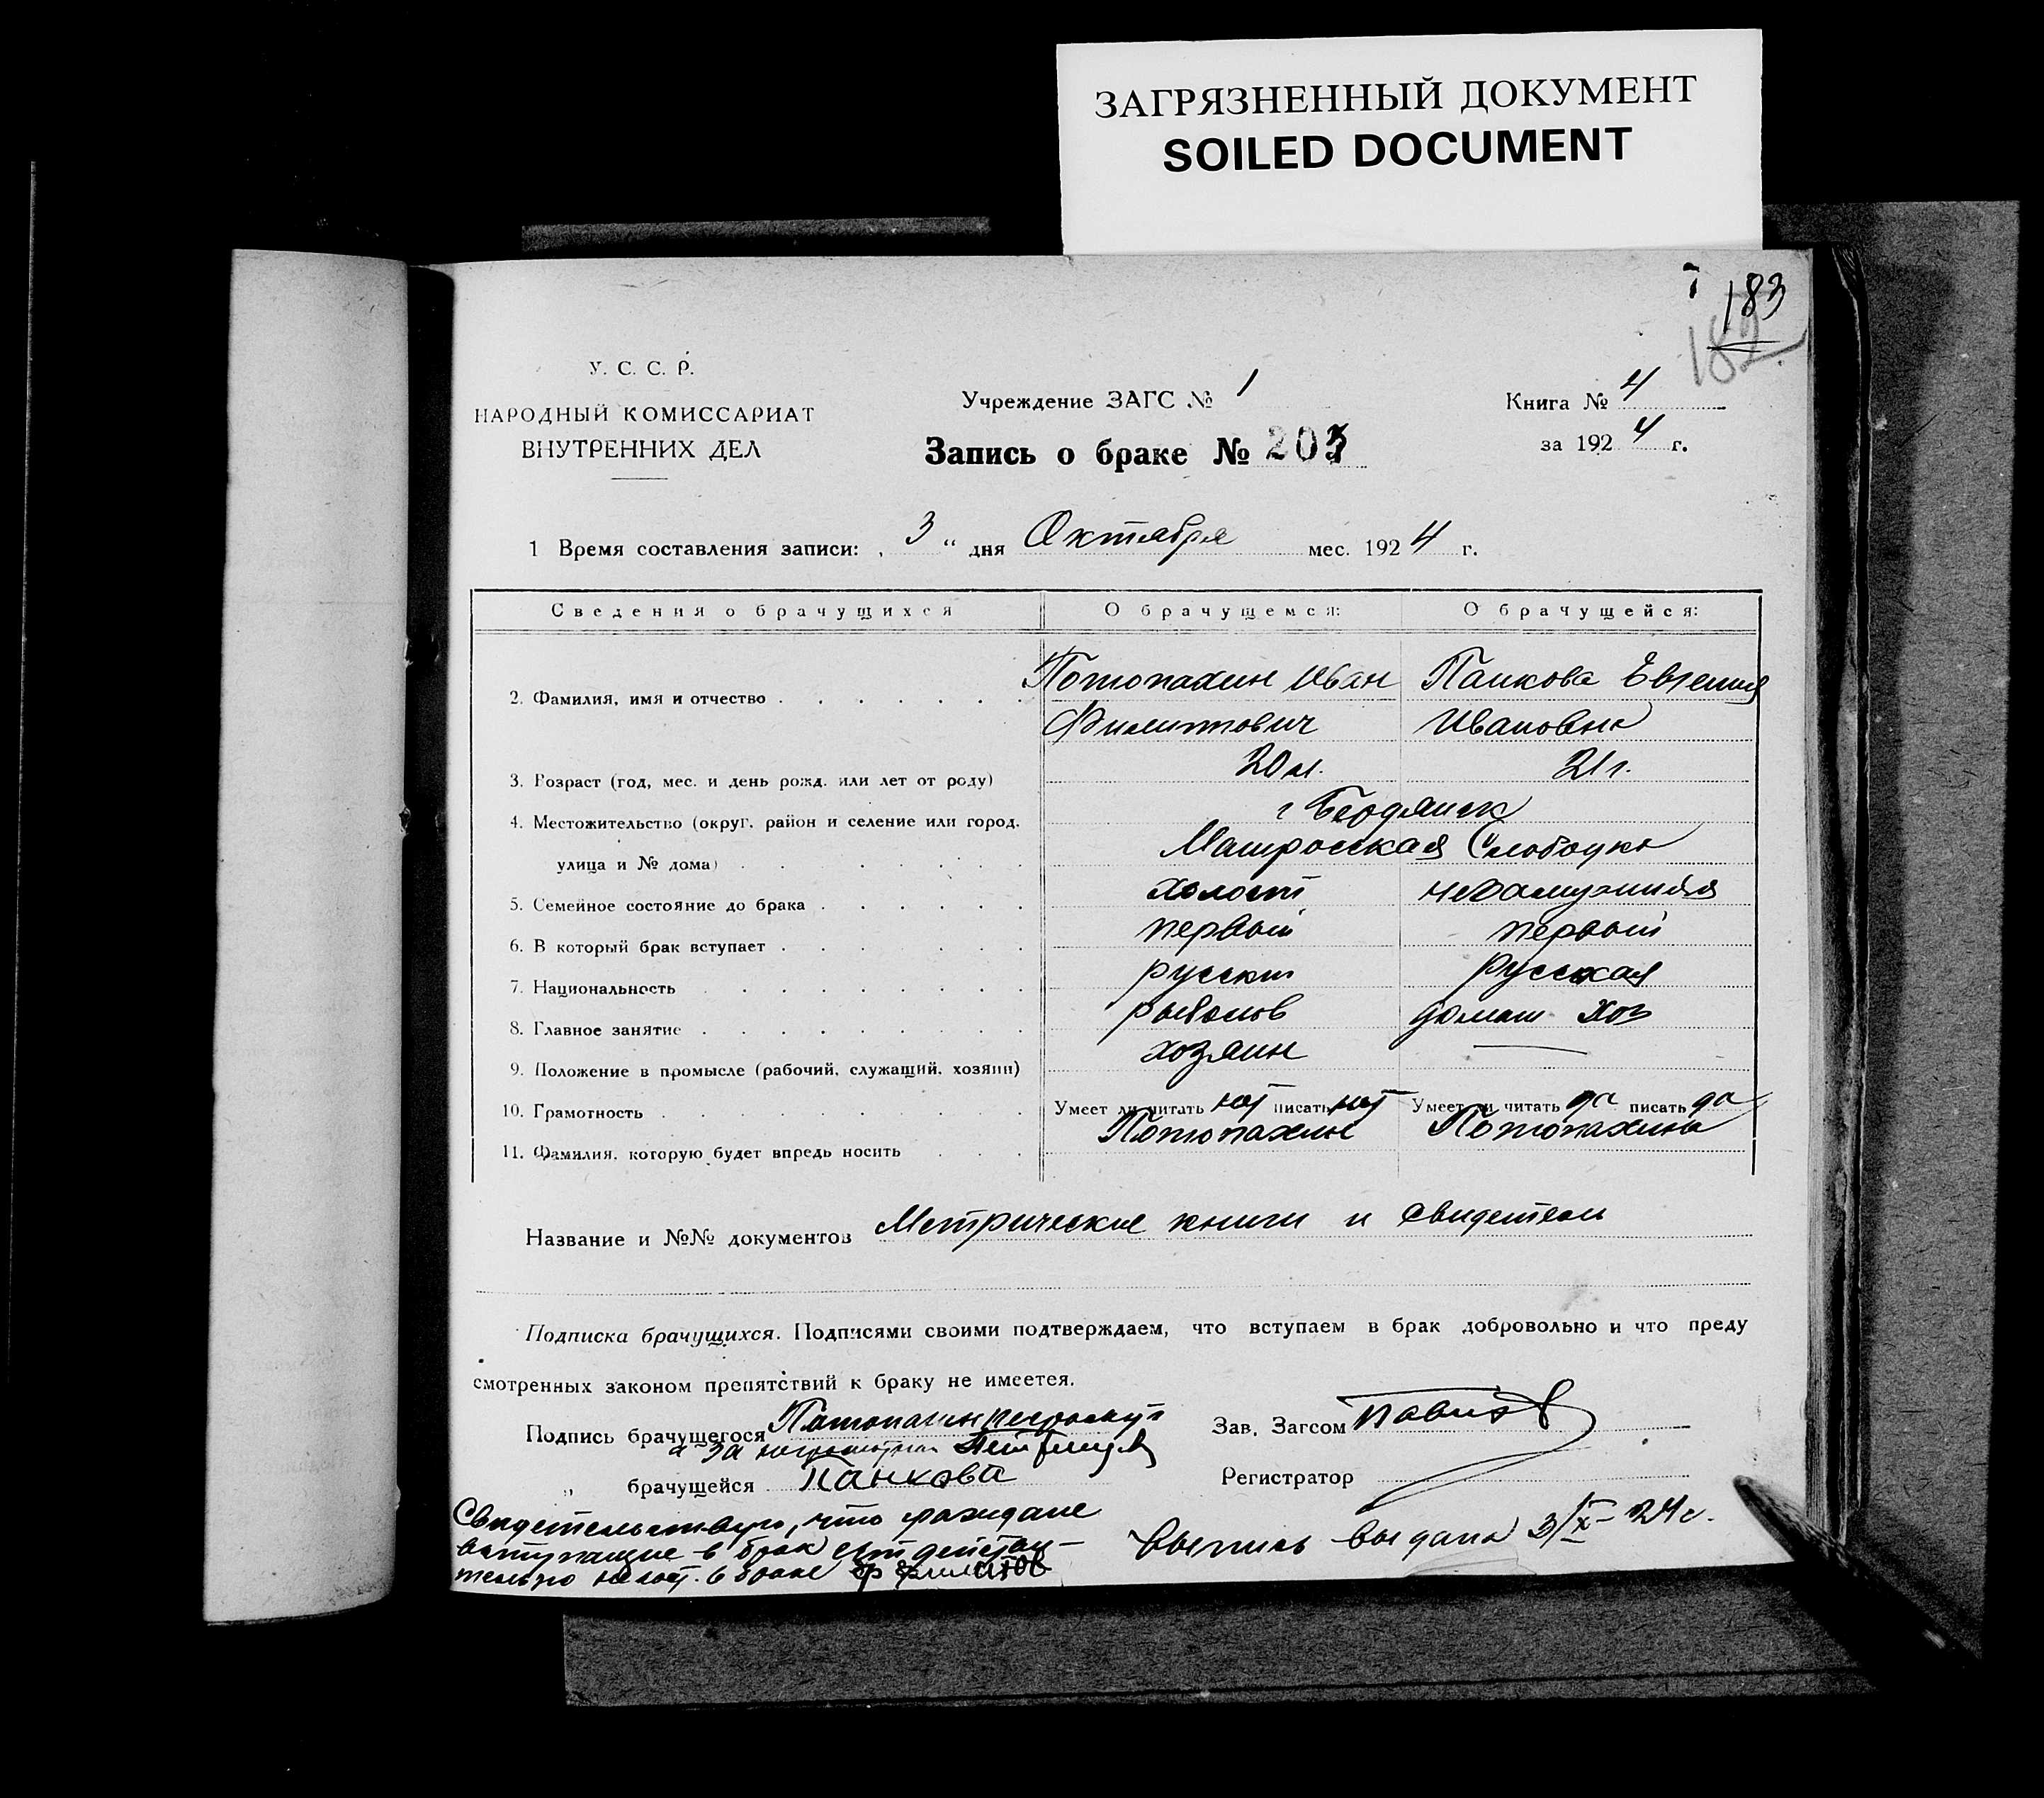 ЗАГРЯЗНЕННЫЙ ДОКУМЕНТ
SOILED DOCUMENT
183
182
У. С. С. Р.
НАРОДНЫЙ КОМИССАРИАТ
ВНУТРЕННИХ ДЕЛ
Учреждение ЗАГС № 1
Запись о браке № 203
Книга № 4
за 1924 г.
1 Время составления записи: „ 3 “ дня Октября мес. 1924 г.
Сведения о брачущихся О брачущемся: О брачущейся:
2. Фамилия, имя и отчество Потопахин Иван Панкова Евгения
Филиппович Ивановна
3. Возраст (год, мес. и день рожд. или лет от роду) 20 л. 21 г.
4. Местожительство (округ, район и селение или город, г Бердянск
улица и № дома) Матросская Слободка
5. Семейное состояние до брака холост незамужняя
6. В который брак вступает первый первый
7. Национальность русский русская
8. Главное занятие рыболов домаш хоз
9. Положение в промысле (рабочий, служащий, хозяин) хозяин —
10. Грамотность Умеет ли читать нет писать нет Умеет ли читать да писать да
11. Фамилия, которую будет впредь носить Потопахин Потопахина
Название и №№ документов Метрические книги и свидетели
Подписка брачущихся. Подписями своими подтверждаем, что вступаем в брак добровольно и что преду
смотренных законом препятствий к браку не имеется.
Подпись брачущегося Потопахин неграмун
а за неграмотного
„ брачущейся Панкова
Зав. Загсом
Регистратор
Свидетельствую, что граждане
вступающие в брак действи-
тельно не сост. в браке
Выпись выдана 3/X 24 г.